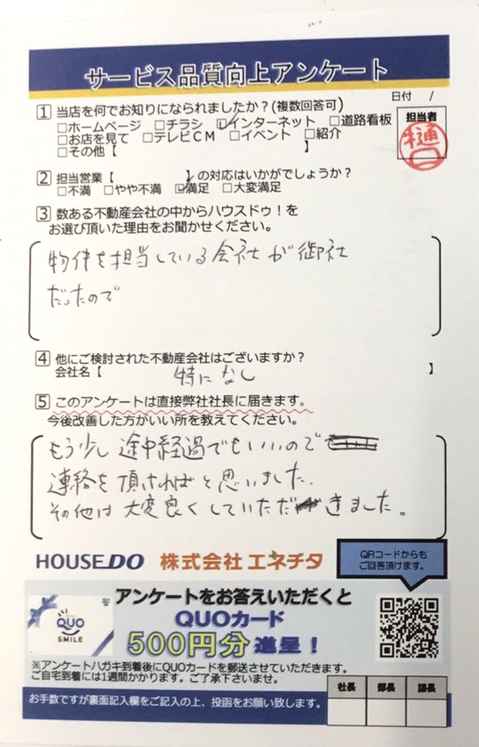 サービス品質向上アンケート
日付 /
担当者
樋
1 当店を何でお知りになられましたか？(複数回答可)
□ホームページ □チラシ ☑インターネット □道路看板
□お店を見て □テレビCM □イベント □紹介
□その他【 】
2 担当営業【 】の対応はいかがでしょうか？
□不満 □やや不満 ☑満足 □大変満足
3 数ある不動産会社の中からハウスドゥ！を
お選び頂いた理由をお聞かせください。
物件を担当している会社が御社
だったので
4 他にご検討された不動産会社はございますか？
会社名【 特になし 】
5 このアンケートは直接弊社社長に届きます。
今後改善した方がいい所を教えてください。
もう少し途中経過でもいいので
連絡を頂ければと思いました。
その他は大変良くしていただきました。
HOUSE DO 株式会社 エネチタ
QRコードからも
ご回答頂けます。
QUO
SMILE
アンケートをお答えいただくと
QUOカード
500円分 進呈！
※アンケートハガキ到着後にQUOカードを郵送させていただきます。
ご自宅到着には1週間かかります。ご了承下さいませ。
お手数ですが裏面記入欄をご記入の上、投函をお願い致します。
社長 部長 課長